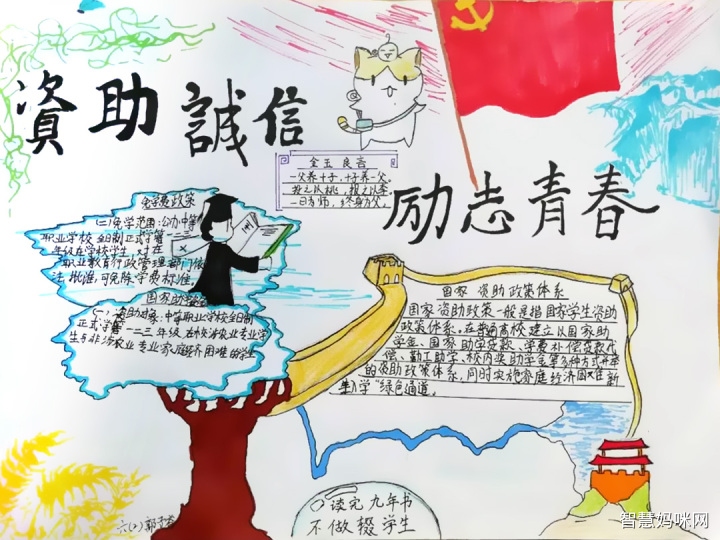 資助誠信
励志青春
金玉良言
一父养十子,十子养一父。
投之以桃,报之以李
一日为师,终身为父。
免学费政策
(二)免学范围:公办中等
职业学校全日制正式学籍一二三
年级在校学生,
职业教育行政管理部门依
法批准,可免除学费标准。
国家助学金
(一)资助对象:中等职业学校全日制
正式学籍一二三年级在校涉农业专业学
生与非涉农业专业家庭经济困难的学生
国家资助政策体系
国家资助政策一般是指国家学生资助
政策体系。在普通高校建立以国家助
学金、国家助学贷款、学费补偿贷款代
偿、勤工助学、校内奖助学金等多种方式并举
的资助政策体系,同时实施家庭经济困难新
生入学“绿色通道
读完九年书
不做辍学生
六(2)郭
智慧妈咪网